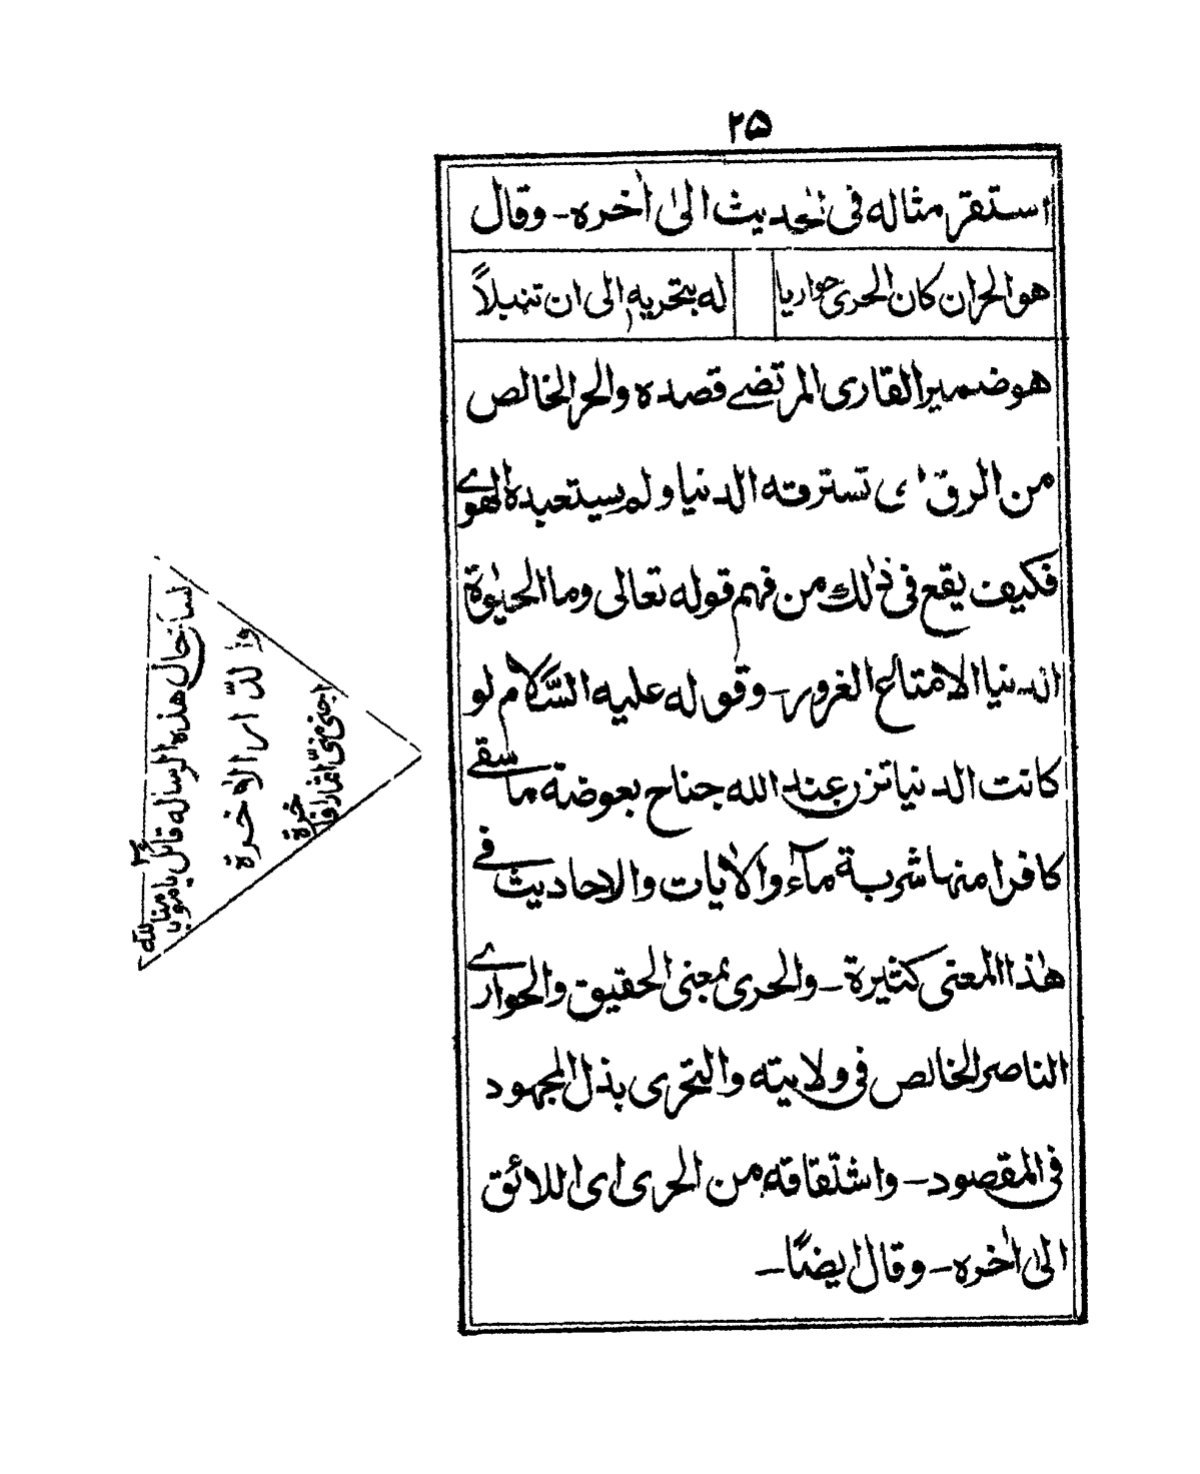 ۲۵
استقر مثاله فی الحدیث الیٰ اٰخره – وقال
هو الحران کان الحری حواریا له بتحریه الی ان تنبلاً
هو ضمیر القاری المرتضے قصده والحر الخالص
من الرق ای تسترقه الدنیا ولم یستعبده الهوے
فکیف یقع فی ذٰلك من فهم قوله تعالی وما الحیٰوة
الدنیا الا متاع الغرور – وقوله علیه السَّلام لو
کانت الدنیا تزن عند الله جناح بعوضة ما سقے
کافرا منها شربة مآء والاٰیات والاحادیث فے
هٰذا المعنی کثیرة – والحری بمعنی الحقیق والحوارے
الناصر الخالص فی ولایته والتحری بذل المجهود
فی المقصود – واشتقاقه من الحری ای اللائق
الیٰ اٰخره – وقال ایضًا –
لسان حال هذه الرساله قائل
والدّار الاٰخرة